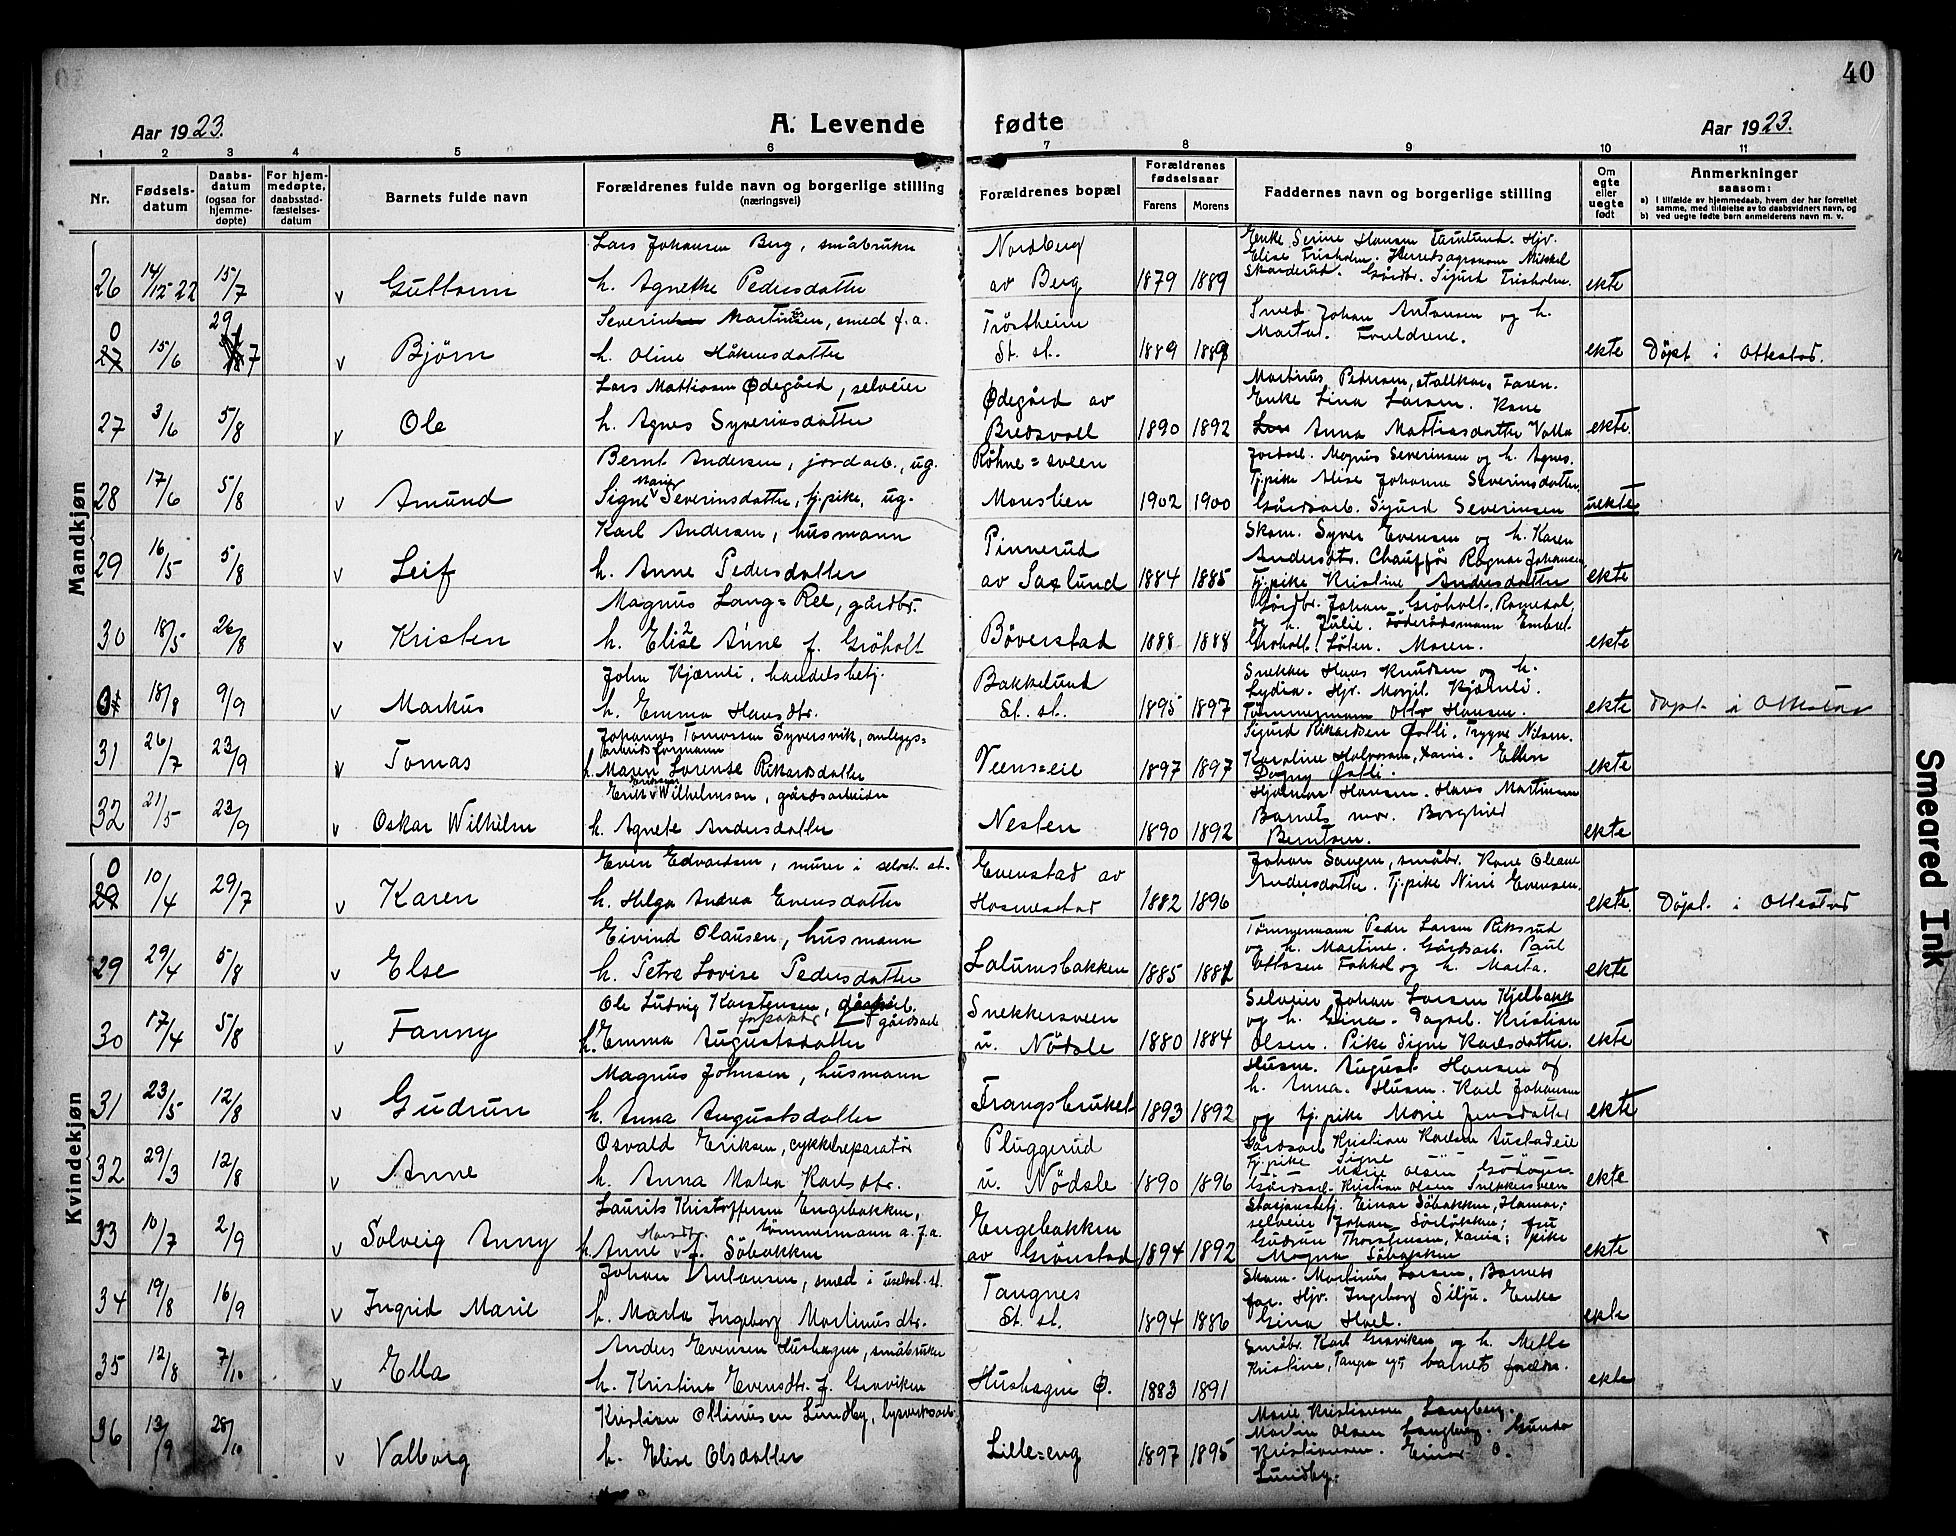 40
Aar 1923.
A. Levende fødte
Aar 1923.
1 2 3 4 5 6 7 8 9 10 11
Nr.
Fødsels-
datum
Daabs-
datum
(ogsaa for
hjemme-
døpte)
For hjem-
medøpte,
daabsstad-
fæstelses-
datum
Barnets fulde navn
Forældrenes fulde navn og borgerlige stilling
(næringsvei)
Forældrenes bopæl
Forældrenes
fødselsaar
Farens
Morens
Faddernes navn og borgerlige stilling
Om
egte
eller
uegte
født
Anmerkninger
saasom:
a) I tilfælde av hjemmedaab, hvem der har forrettet
samme, med tilføielse av to daabsvidners navn, og
b) ved uegte fødte barn anmelderens navn m. v.
Mandkjøn
26 14/12-22 15/7 v Guttorm
Lars Johansen Berg, småbruker
h. Agnethe Pedersdatter
Nordberg
av Berg
1879 1889
Enke Serine Hansen
Elise Frisholm. Herredsagronom Mikkel
Skarderud. Gårdbr. Sigurd Frisholm.
ekte
0 27 15/6 29/7 v Bjørn
Severin Martinsen, smed f.a.
h. Oline Håkensdatter
Trøstheim
St. st.
1889 1889
Smed Johan Antonsen og h.
Marta. Foreldrene.
ekte
Döpt i Ottestad.
27 3/6 5/8 v Ole
Lars Mattiasen Ødegård, selveier
h. Agnes Syverinsdatter
Ødegård av
Bredsvoll
1890 1892
Martinus Pedersen, stallkar. Faren.
Enke Lina Larsen. Kone
Anna Mattiasdatter Volla
ekte.
28 17/6 5/8 v Amund
Bernt Andersen, jordarb., ug.
Signe Marie Severinsdatter, tj.pike, ug.
Röhne=sveen
Monslien
1902 1900
Jordarb. Magnus Severinsen og h. Agnes.
Tj.pike Alise Johanne Severinsdatter.
Gårdsarb. Sigurd Severinsen
uekte
29 16/5 5/8 v Leif
Karl Andersen, husmann
h. Anne Pedersdatter
Pinnerud
av Saxlund
1884 1885
Skom. Syver Evensen og h. Karen
Andersdt. Chauffør Ragnar Johansen
tj.pike Kristine Andersdatter
ekte
30 18/5 26/8 v Kristen
Magnus Lang=Ree, gårdbr.
h. Elise Anne f. Gröholt
Böverstad
1888 1888
Gårdbr. Johan Gröholt, Romedal,
og h. Julie. Föderådsmann Embret
Gröholt, Löten. Moren.
ekte
0 18/8 9/9 v Markus
John Kjærnli, handelsbetj.
h. Emma Hansdtr.
Bakkelund
St. st.
1895 1897
Snekker Hans Knudsen og h.
Lydia. Hjv. Margit Kjærnli.
Tömmermann Otto Hansen.
ekte
Döpt i Ottestad
31 26/7 23/9 v Tomas
Johannes Tomassen Syversvik, anleggs=
arbeidsformann
h. Maren Lorense Rikardsdatter
Veenseie
1897 1897
Sigurd Rikardsen Østli. Trygve Nilsen.
Karoline Halvorsen, Xania. Ellen
Dagny Østli.
ekte
32 21/5 23/9 v Oskar Wilhelm
Erik Wilhelmsen, gårdsarbeider
h. Agnete Andersdatter
Nesten
1890 1892
Hjalmar Hansen. Hans Martinsen
Barnets mor. Borghild
Berntsen.
ekte
Kvindekjøn
0 29 10/4 29/7 v Karen
Even Edvardsen, murer i selvst. st.
h. Helga Andrea Evensdatter
Evenstad av
Hosmestad
1882 1896
Johan Sangen, småbr. Kone Oleane
Andersdatter. Tj.pike Nini Evensen.
ekte.
Döpt i Ottestad
29 29/4 5/8 v Else
Eivind Olausen, husmann
h. Petra Lovise Pedersdatter
Lalumsbakken
1885 1882
Tømmermann Peder Larsen Riksrud
og h. Martine. Gårdsarb. Paul
Ottosen Fokhol og h. Marta.
ekte
30 17/4 5/8 v Fanny
Ole Ludvig Karstensen,
forpakter gårdsarb
h. Emma Augustsdatter
Snekkersveen
u. Nödsle
1880 1884
Selveier Johan Larsen Kjelbakk
og h. Gina. Dagarb. Kristian
Olsen. Pike Signe Karlsdatter.
ekte
31 23/5 12/8 v Gudrun
Magnus Johnsen, husmann
h. Anna Augustsdatter
Frangsbruket
1893 1892
Husm. August Hansen og
h. Anna. Husm. Karl Johansen
og tj.pike Marie Jensdatter
ekte
32 29/3 12/8 v Anne
Osvald Eriksen, cykkelreparatör
h. Anna Matea Karlsdtr.
Pluggerud
u. Nödsle
1890 1896
Gårdsarb Kristian Karlsen Austadeie
Tj.pike Signe
Marie Olsen
Gårdsarb. Kristian Olsen Snekkersveen
ekte
33 10/7 2/9 v Solveig Anny
Laurits Kristoffersen Engebakken,
tømmermann a. f. a.
h. Anne Hansdtr. f. Söbakken
Engebakken
av Grönstad
1894 1892
Stasjonsbetj. Einar Söbakken, Hamar;
selveier Johan Sörlökken; fru
Gudrun Thorstensen, Xania; pike
Magna Söbakken
ekte
34 19/8 16/9 v Ingrid Marie
Johan Antonsen, smed i uselvst. st.
h. Marta Ingeborg Martinusdtr.
Tangnes
St. st.
1894 1886
Skom. Martinus Larsen. Barnets
far. Hjv. Ingeborg Silju. Enke
Gina Hoel.
ekte
35 12/8 7/10 v Ella
Anders Evensen Hushagen, småbruker
h. Kristine Evensdtr. f. Graviken
Hushagen Ø.
1883 1891
Småbr. Karl Graviken og h. Mette
Kristine, Tangen og barnets foreldre.
ekte
36 13/9 28/10 v Valborg
Kristian Ottinusen Lundby, lysverksarb.
h. Elise Olsdatter
Lille=eng
1897 1895
Marie Kristiansen Langberg.
Martin Olsen Langberg. Gunda
Kristiansen. Einar O.
Lundby.
Smeared Ink